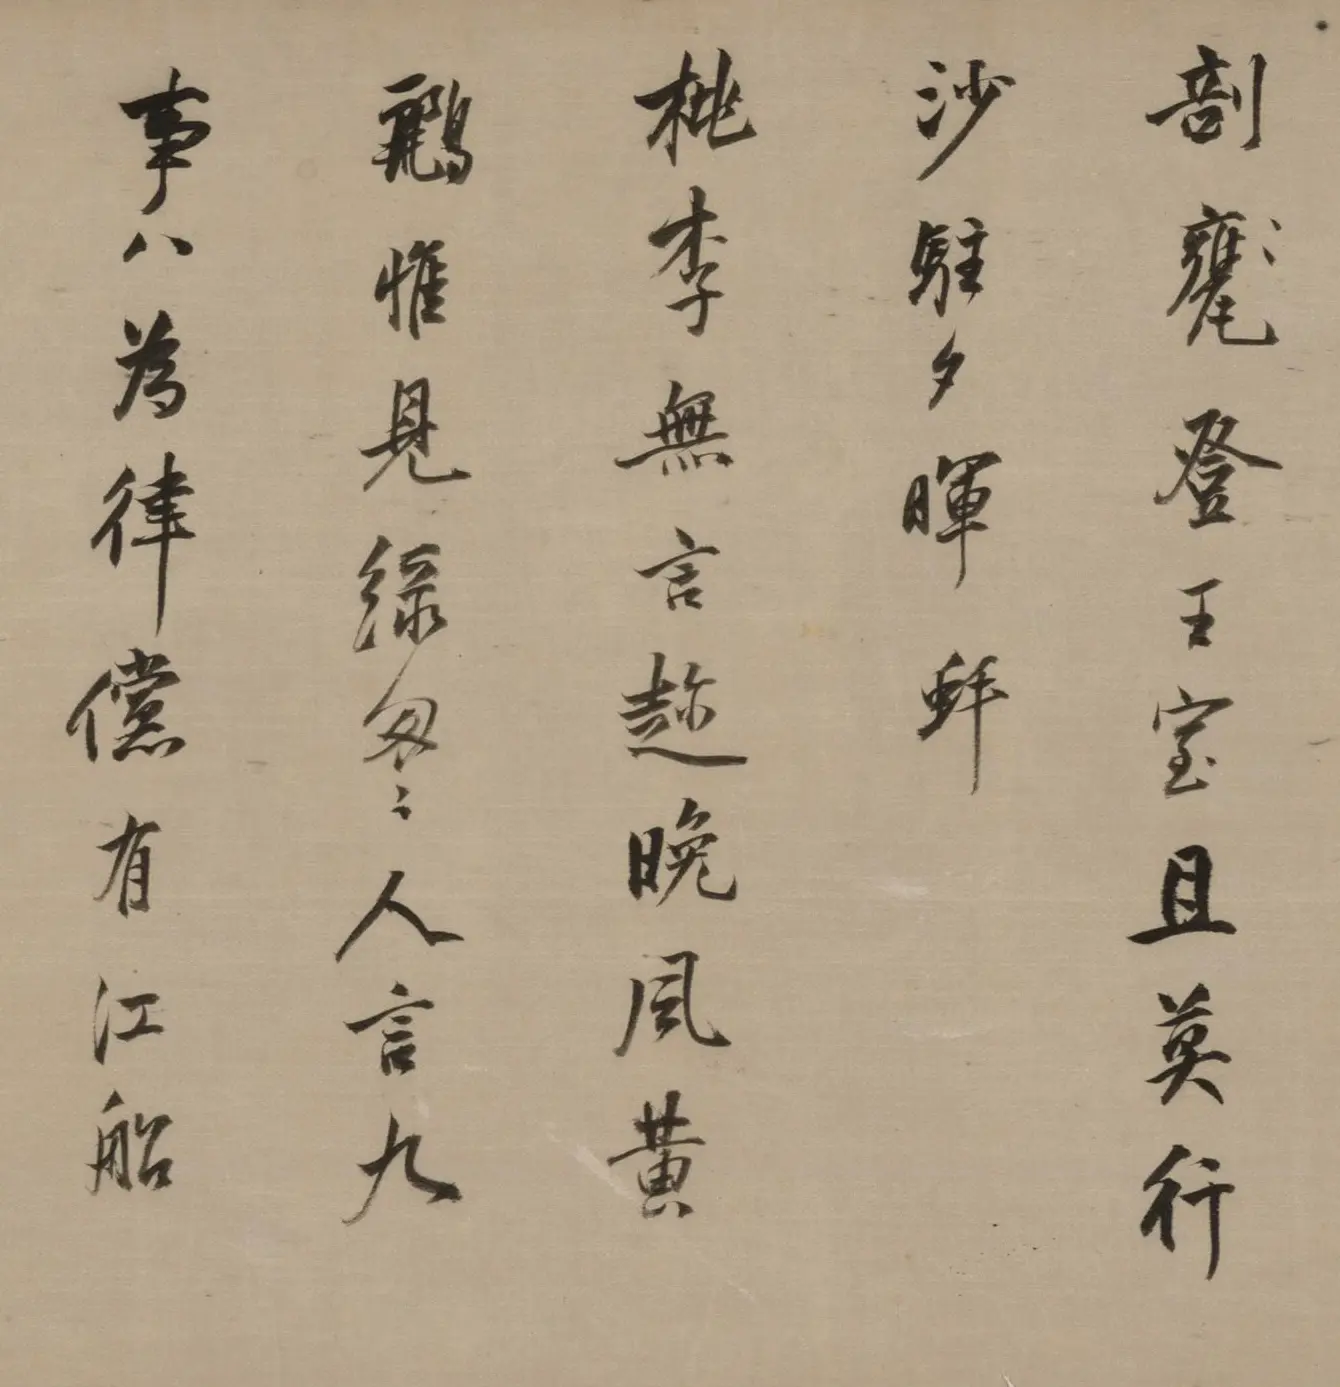 剖甕登王室且莫行
沙駐夕暉蚌
桃李無言趂晚風黄
鸝惟見綠匆匆人言九
事八為律儻有江船